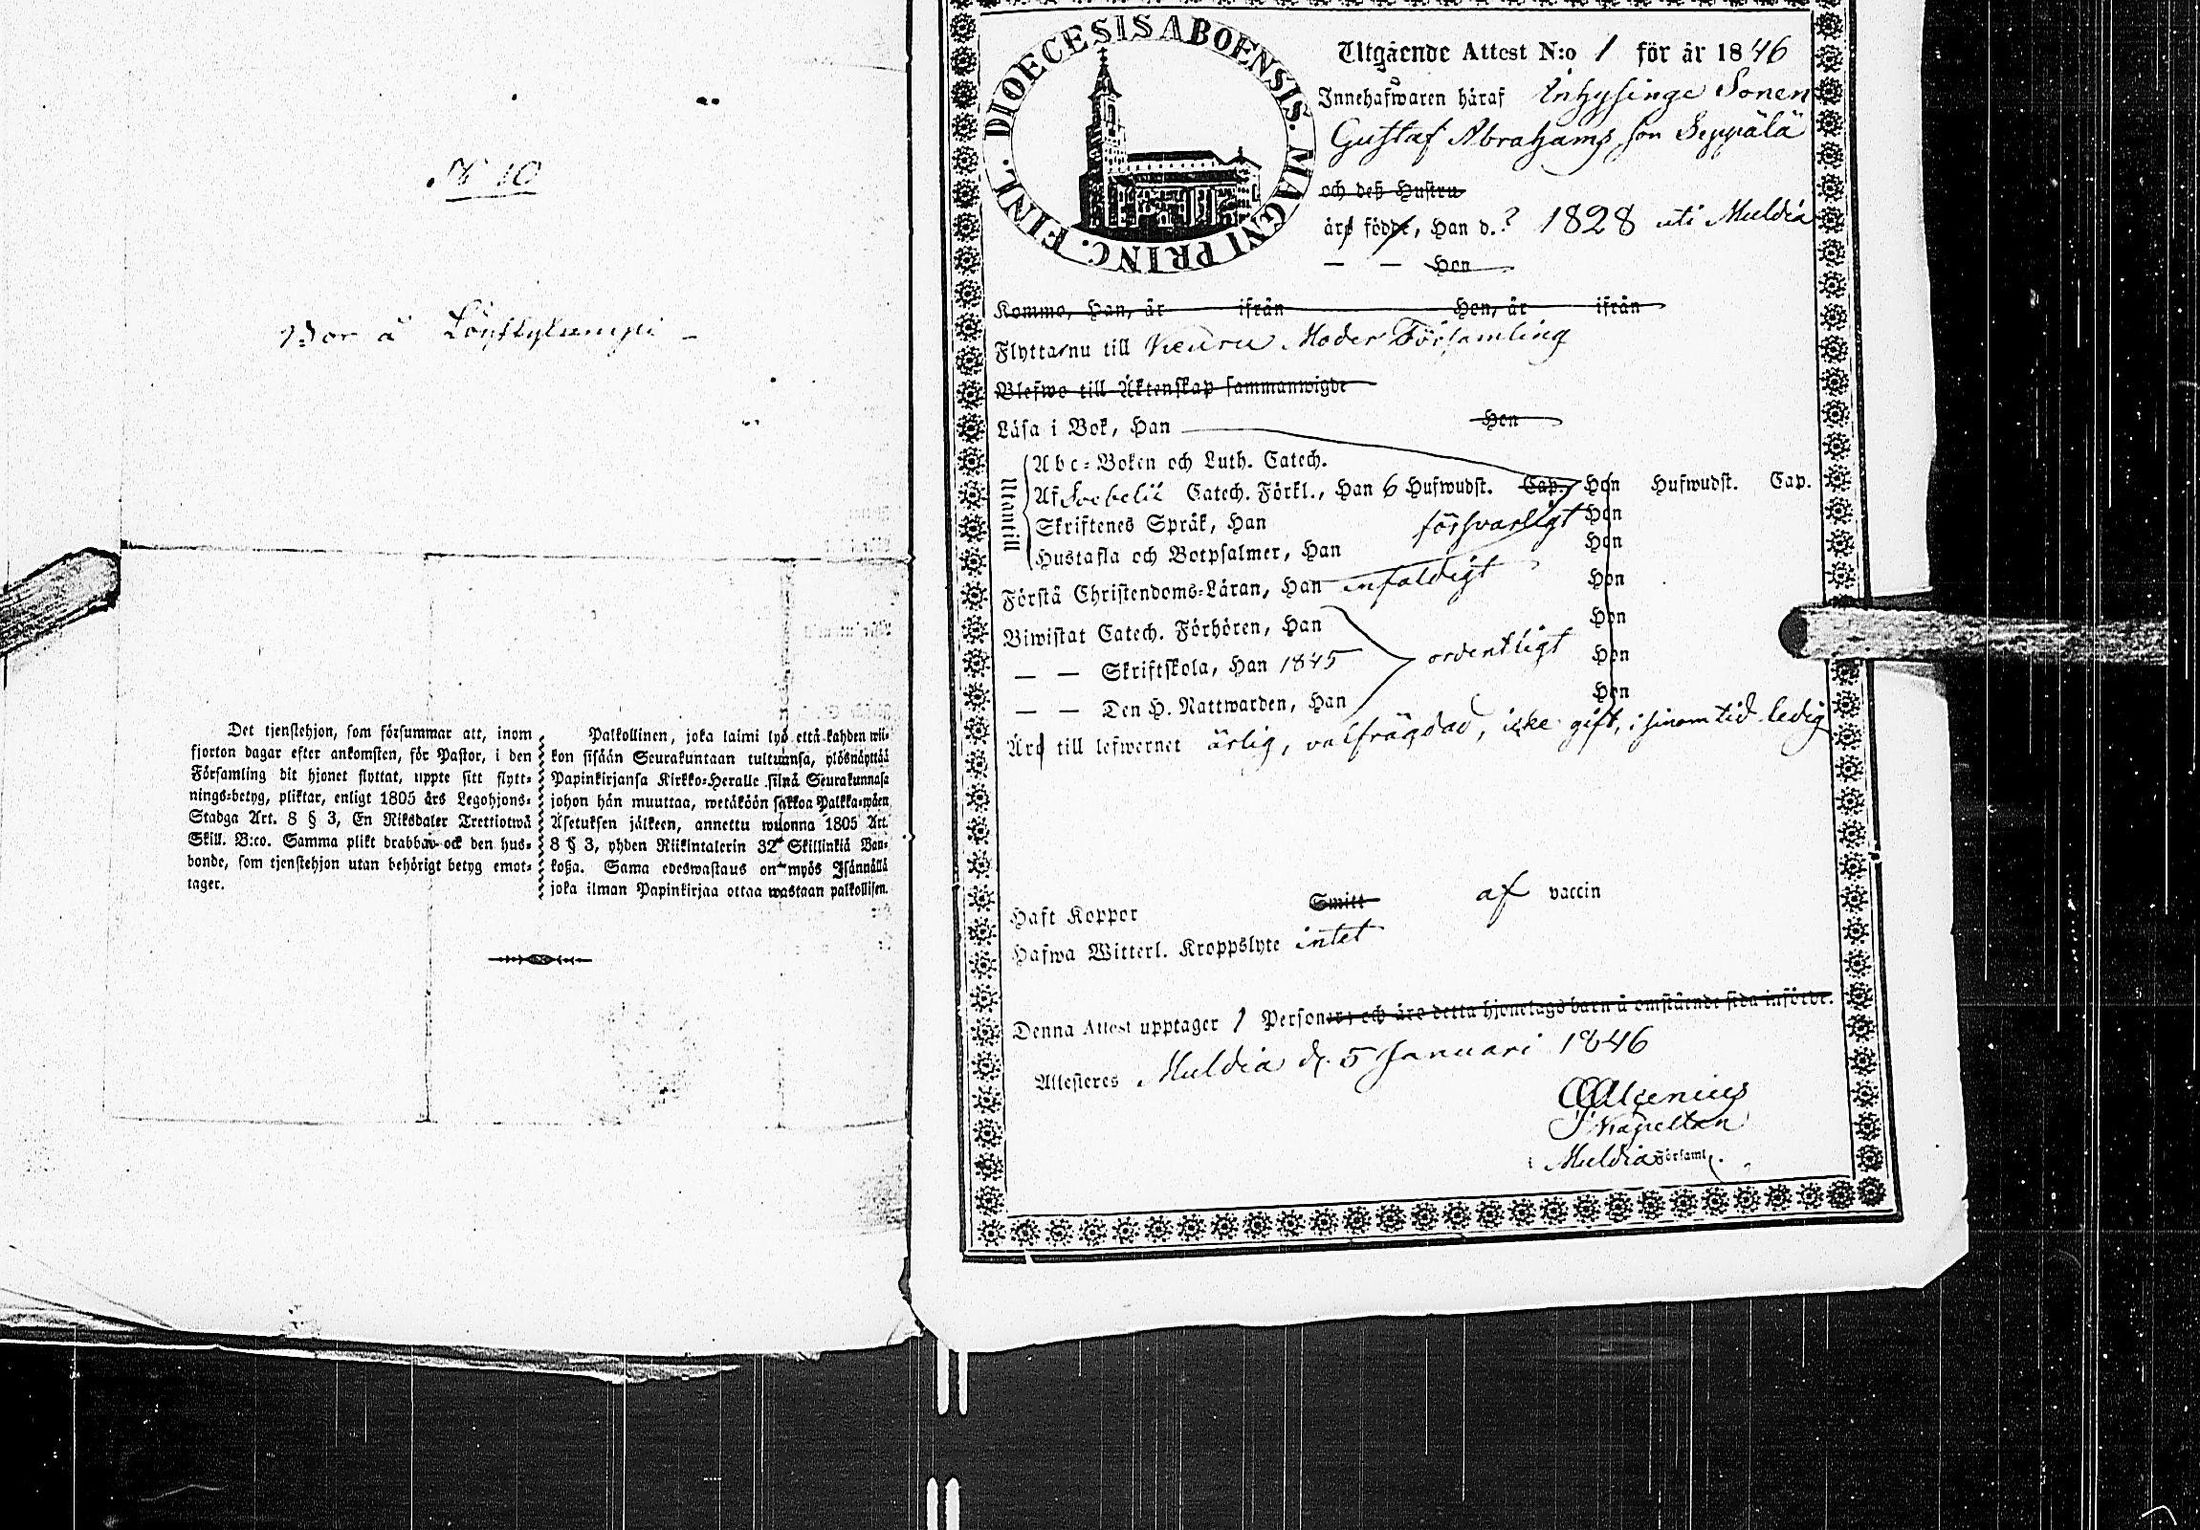 N° 10
Bor å Löytlylampi
Det tjenstehjon, som försummar att, inom
fjorton dagar efter ankomsten, för Pastor, i den
Församling dit hjonet flyttat, uppte sitt flytt-
nings-betyg, pliktar, enligt 1805 års Legohjons-
Stadga Art. 8 § 3, En Riksdaler Trettiotwå
Skill. B:co. Samma plikt drabbar ock den hus-
bonde, som tjenstehjon utan behörigt betyg emot-
tager.
Palkollinen, joka laimi lyö että kahden wii-
kon sisään Seurakuntaan tultuansa, ylösnäyttää
Papinkirjansa Kirkko-Heralle siinä Seurakunnasa
johon hän muuttaa, wetäköön sakkoa Palkka-wäen
Asetuksen jälkeen, annettu wuonna 1805 Art.
8 § 3, yhden Riikintalerin 32 Skillinkiä Ban-
koßa. Sama edeswastaus on myös Isännällä
joka ilman Papinkirjaa ottaa wastaan palkollisen.
DIOECESIS ABOENSIS. MAGNI PRINC. FINL.
Utgående Attest N:o 1 för år 1846
Innehafwaren häraf Inhysinge Sonen
Gustaf Abrahams son Seppälä
och deß Hustru
äro födde, Han d. ? 1828 uti Muldia
— — Hon
Kommo, Han, år ifrån Hon, år ifrån
Flytta nu till Keuru Moder Församling
Blefwo till Äktenskap sammanwigde
Läsa i Bok, Han Hon
Utantill
Abc-Boken och Luth. Catech.
Af Svebelii Catech. Förkl., Han 6 Hufwudst. Cap. Hon Hufwudst. Cap.
Skriftenes Språk, Han försvarligt Hon
Hustafla och Botpsalmer, Han Hon
Förstå Christendoms-Läran, Han enfaldigt Hon
Biwistat Catech. Förhören, Han Hon
— — Skriftskola, Han 1845 ordentligt Hon
— — Den H. Nattwarden, Han Hon
Äro till lefwernet ärlig, välfrägdad, icke gift, i sinom tid ledig
Haft Koppor Smitt af vaccin
Hafwa Witterl. Kroppslyte intet
Denna Attest upptager 1 Personer, och äro detta hjonelags barn å omstående sida införde.
Attesteres Muldia d. 5 Januari 1846
Alcenius
Kapellan
i Muldia Församl.